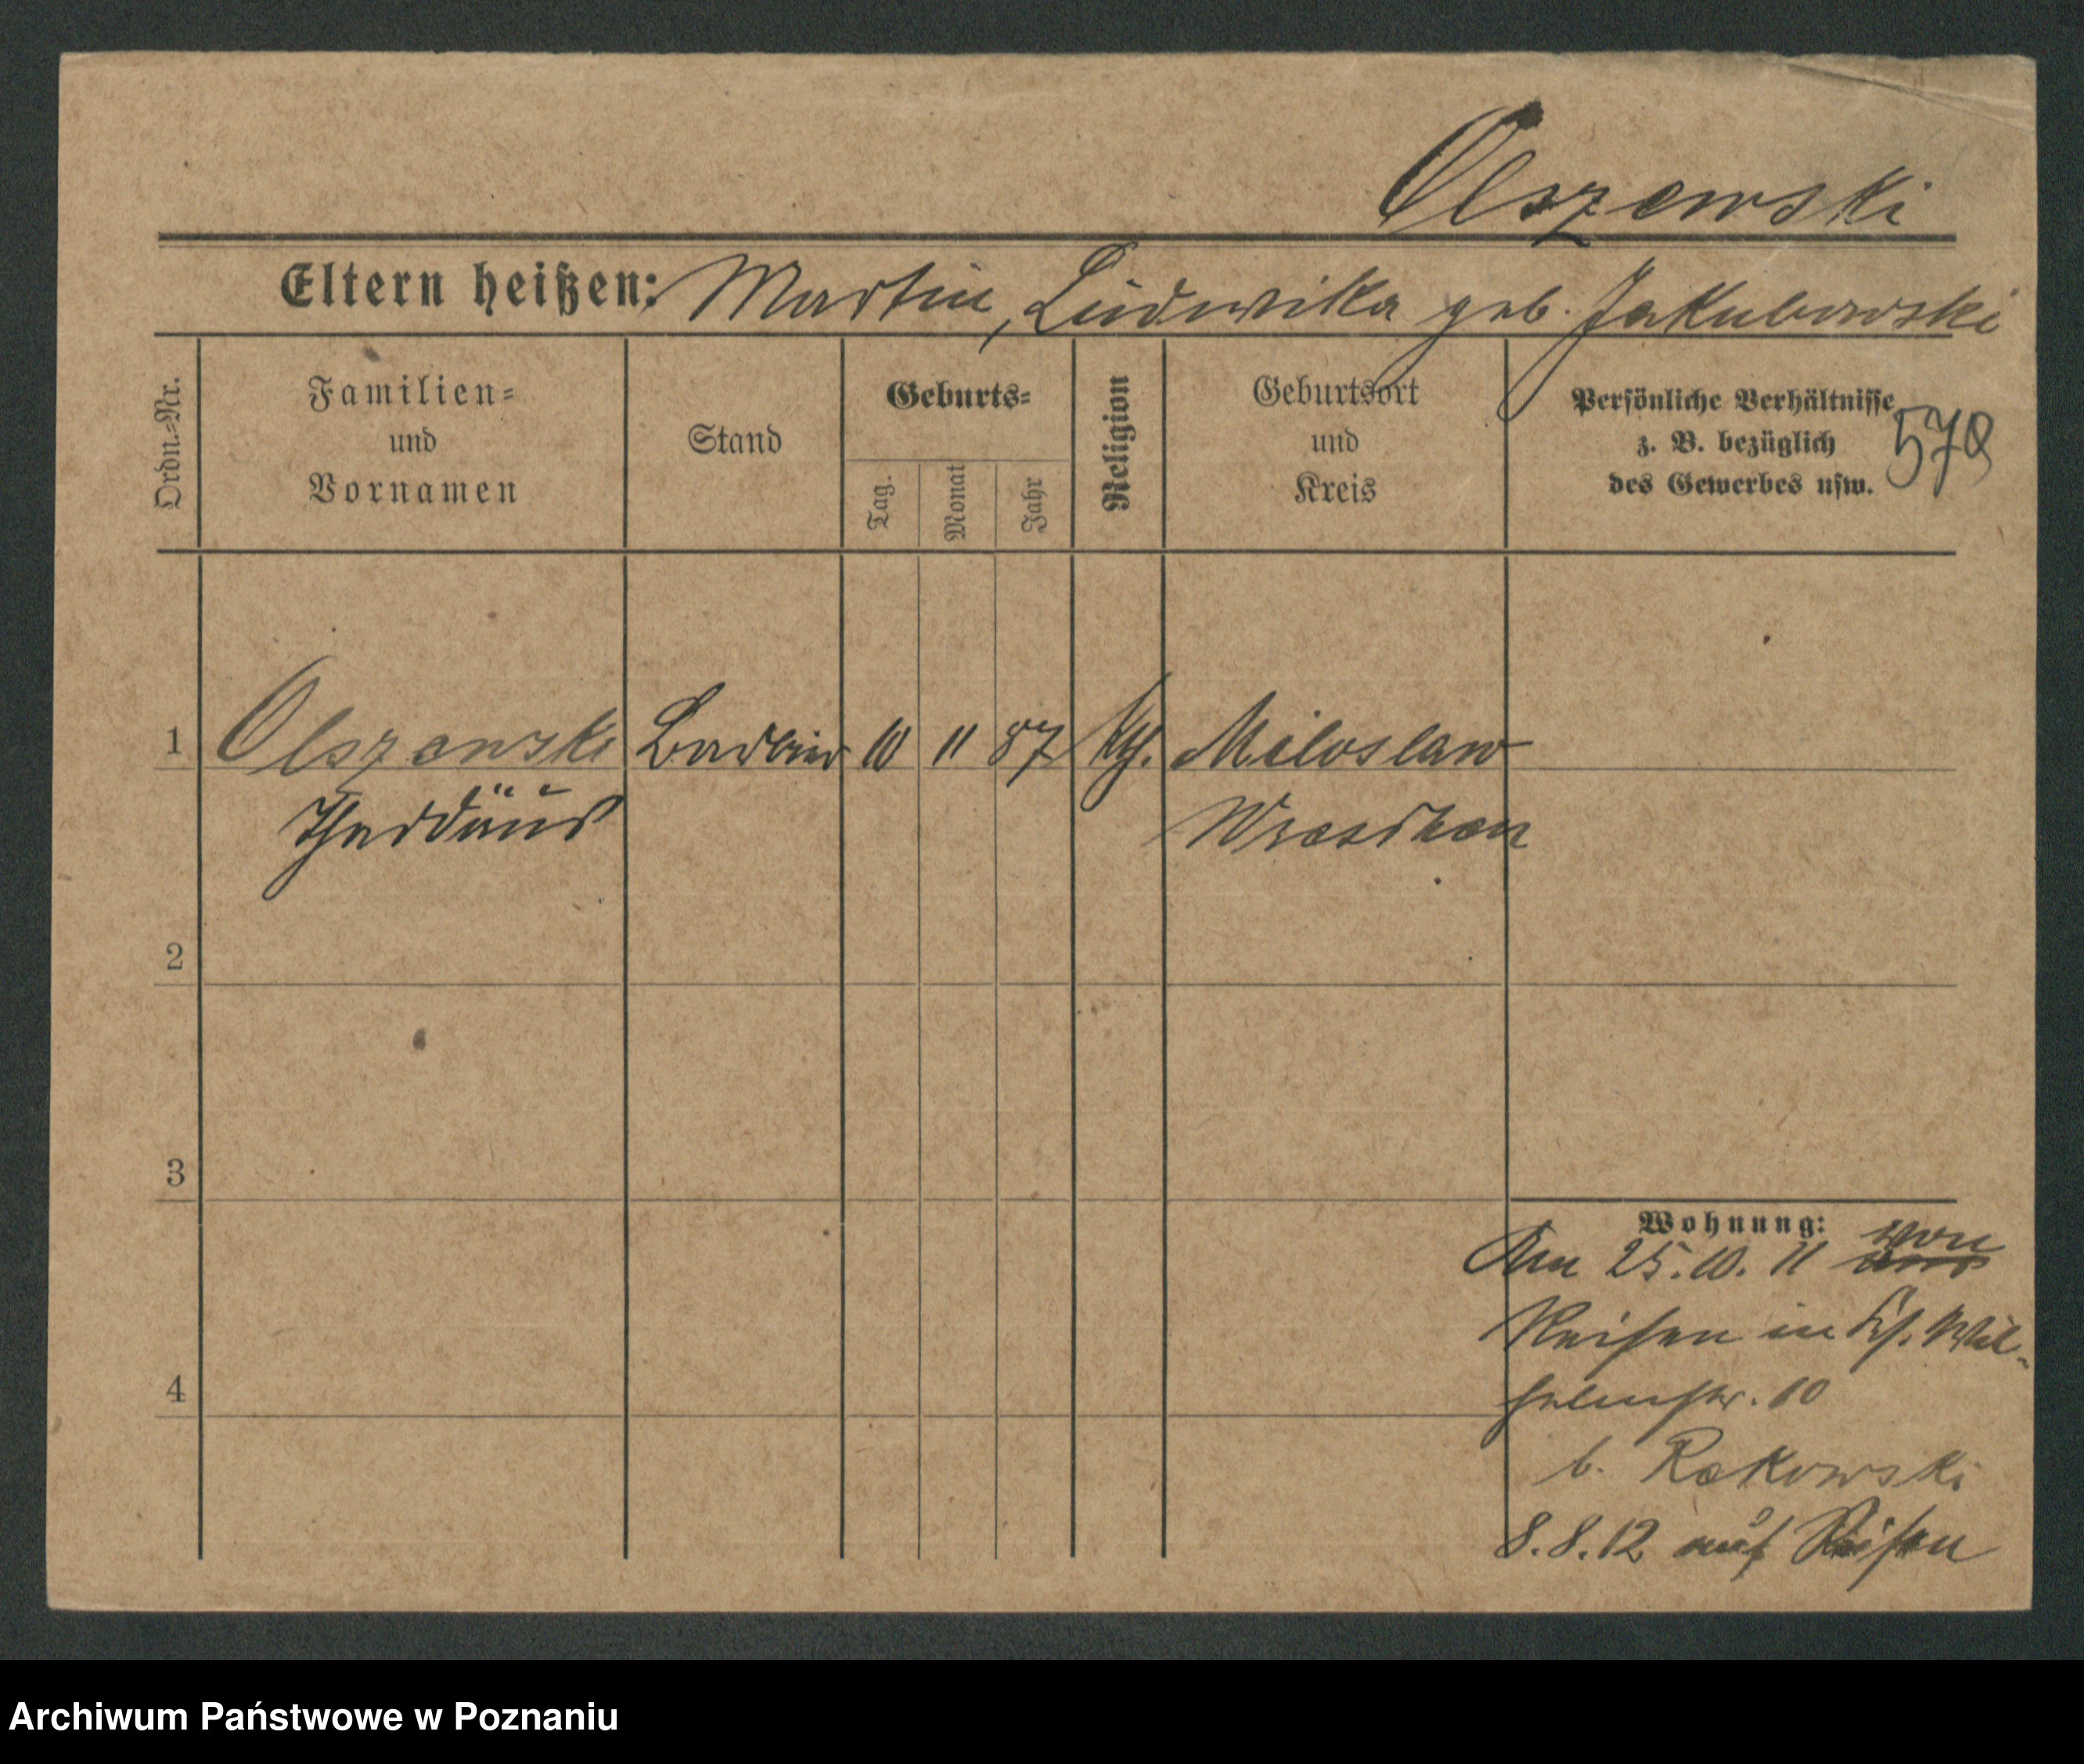 Olszewski
Eltern heißen: Martin, Ludwika geb. Jakubowski
Ordn.=Nr.
Familien=
und
Vornamen
Stand
Geburts=
Tag.
Monat
Jahr
Religion
Geburtsort
und
Kreis
Persönliche Verhältnisse
z. B. bezüglich
des Gewerbes usw.
578
1 Olszewski Barbier 10 11 87 kth. Miloslaw
Thaddäus Wreschen
2
3
4
Wohnung:
Am 25.10.11 von
Reisen in Wil-
helmstr. 10
b. Rakowski
8.8.12 auf Reisen
Archiwum Państwowe w Poznaniu